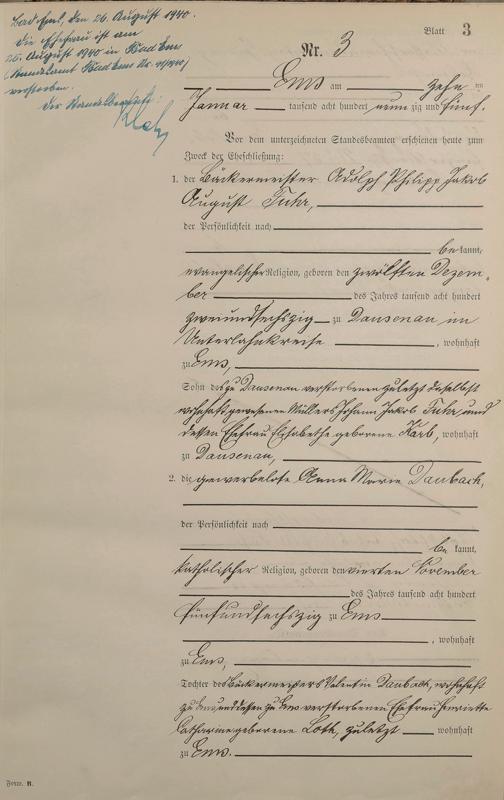 Bad Ems, den 26. August 1940.
Die Ehefrau ist am
25. August 1940 in Bad Ems
(Standesamt Bad Ems Nr. /1940)
verstorben.
Der Standesbeamte:
Blatt 3
Nr. 3
Ems am zehn ten
Januar tausend acht hundert neun zig und fünf.
Vor dem unterzeichneten Standesbeamten erschienen heute zum
Zweck der Eheschließung:
1. der Bäckermeister Adolph Philipp Jakob
August Fuhr,
der Persönlichkeit nach
be kannt,
evangelischer Religion, geboren den zwölften Dezem-
ber des Jahres tausend acht hundert
zweiundsechszig zu Dausenau im
Unterlahnkreise, wohnhaft
zu Ems,
Sohn des zu Dausenau verstorbenen zuletzt daselbst
wohnhaft gewesenen Müllers Johann Jakob Fuhr und
dessen Ehefrau Elisabethe geborene Karb, wohnhaft
zu Dausenau,
2. die gewerbelose Anna Marie Daubach,
der Persönlichkeit nach
be kannt,
katholischer Religion, geboren den vierten November
des Jahres tausend acht hundert
fünfundsechszig zu Ems
, wohnhaft
zu Ems,
Tochter des Bäckermeisters Valentin Daubach, wohnhaft
zu Ems und dessen zu Ems verstorbenen Ehefrau Henriette
Catharine geborene Loth, zuletzt wohnhaft
zu Ems.
Form. B.